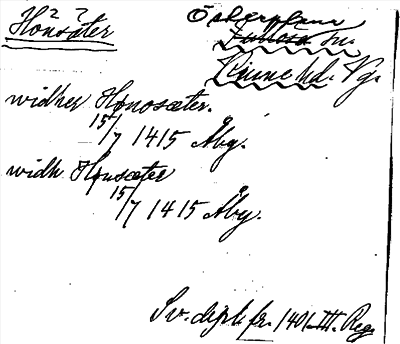 Honsäter
Österplana
sn.
Kinne hd. Vg.
widher Hønosæter.
15/7 1415 Åby.
widh. Hønsæter
15/7 1415 Åby.
Sv. dipl. fr. 1401 III. Reg.